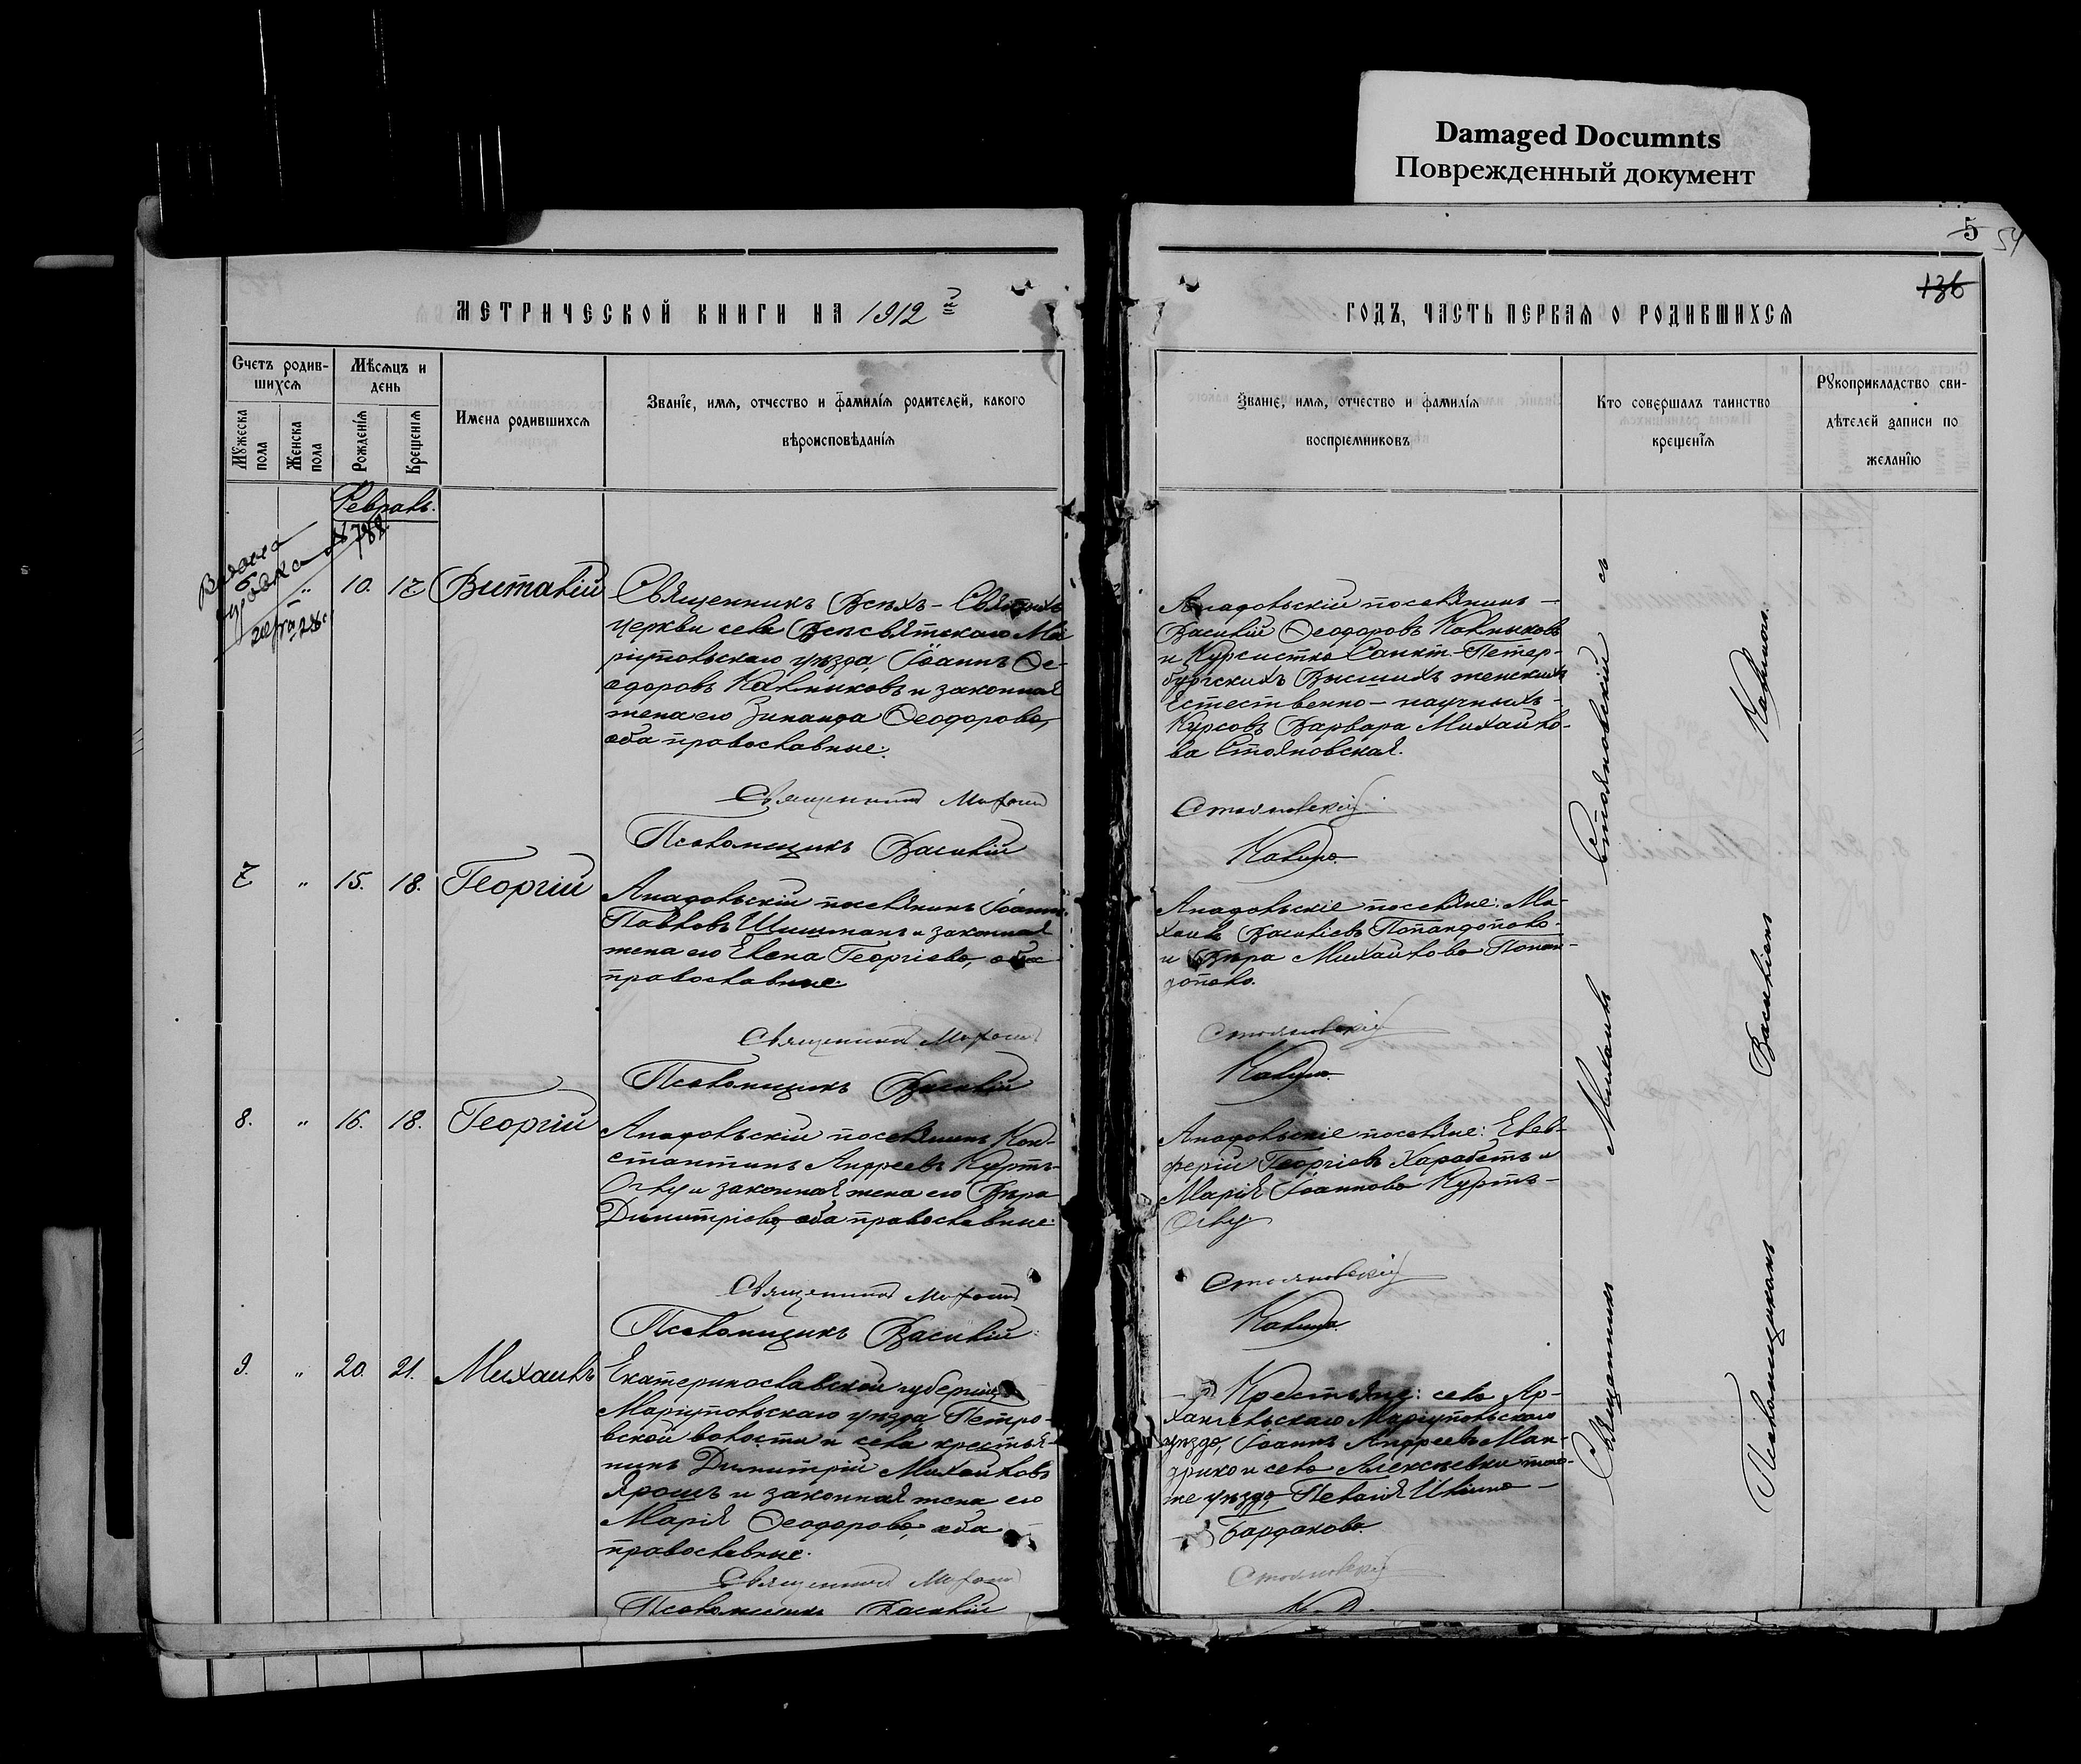 Damaged Documnts
Поврежденный документ
5
54
136
МЕТРИЧЕСКОЙ КНИГИ НА 1912 й
ГОДЪ, ЧАСТЬ ПЕРВАЯ О РОДИВШИХСЯ
Счетъ родив-
шихся
Мужеска
пола
Женска
пола
Мѣсяцъ и
день
Рожденія
Крещенія
Имена родившихся
Званіе, имя, отчество и фамилія родителей, какого
вѣроисповѣданія
Званіе, имя, отчество и фамилія
воспріемниковъ
Кто совершалъ таинство
крещенія
Рукоприкладство сви-
дѣтелей записи по
желанію
Февраль.
№ 788
6 " 10. 17. Виталій
Священникъ Всѣхъ-Святской
церкви села Всесвятскаго Ма
ріупольскаго уѣзда, Іоаннъ Ѳе-
одоровъ Калмыковъ и законная
жена его Зинаида Ѳеодорова,
оба православные.
Священникъ
Псаломщикъ Василій
Анадольскій поселянинъ —
Василій Ѳеодоровъ Калмыковъ
и Курсистка Санкт-Петер-
бургскихъ Высшихъ женскихъ
Естественно-научныхъ-
Курсовъ Варвара Михайло-
ва Стояновская.
Стояновскій
7 " 15. 18. Георгій
Анадольскій поселянинъ Іоаннъ
Павловъ Шишманъ и законная
жена его Елена Георгіева, оба
православные.
Священникъ
Псаломщикъ Василій
Анадольскіе поселяне: Ми-
хаилъ Василіевъ Попандополо
и Вѣра Михайлова Попан-
дополо.
Стояновскій
8. " 16. 18. Георгій
Анадольскій поселянинъ Кон-
стантинъ Андреевъ Куртъ-
Оглу и законная жена его Вѣра
Димитріева, оба православные.
Священникъ
Псаломщикъ Василій
Анадольскіе поселяне: Елев-
ферій Георгіевъ Харабетъ и
Марія Іоаннова Куртъ-
Оглу
Стояновскій
9. " 20. 21. Михаилъ
Екатеринославской губерніи,
Маріупольскаго уѣзда Петро-
вской волости и села крестья-
нинъ Димитрій Михайловъ
Ярошъ и законная жена его
Марія Ѳеодорова, оба
православные.
Священникъ
Псаломщикъ Василій
Крестьяне: села Ар-
хангельскаго Маріупольскаго
уѣзда, Іоаннъ Андреевъ Ман-
дрико и села Алексѣевки того-
же уѣзда, Пелагія
Бардакова.
Стояновскій
Священникъ Михаилъ Стояновскій съ
Псаломщикомъ Василіемъ